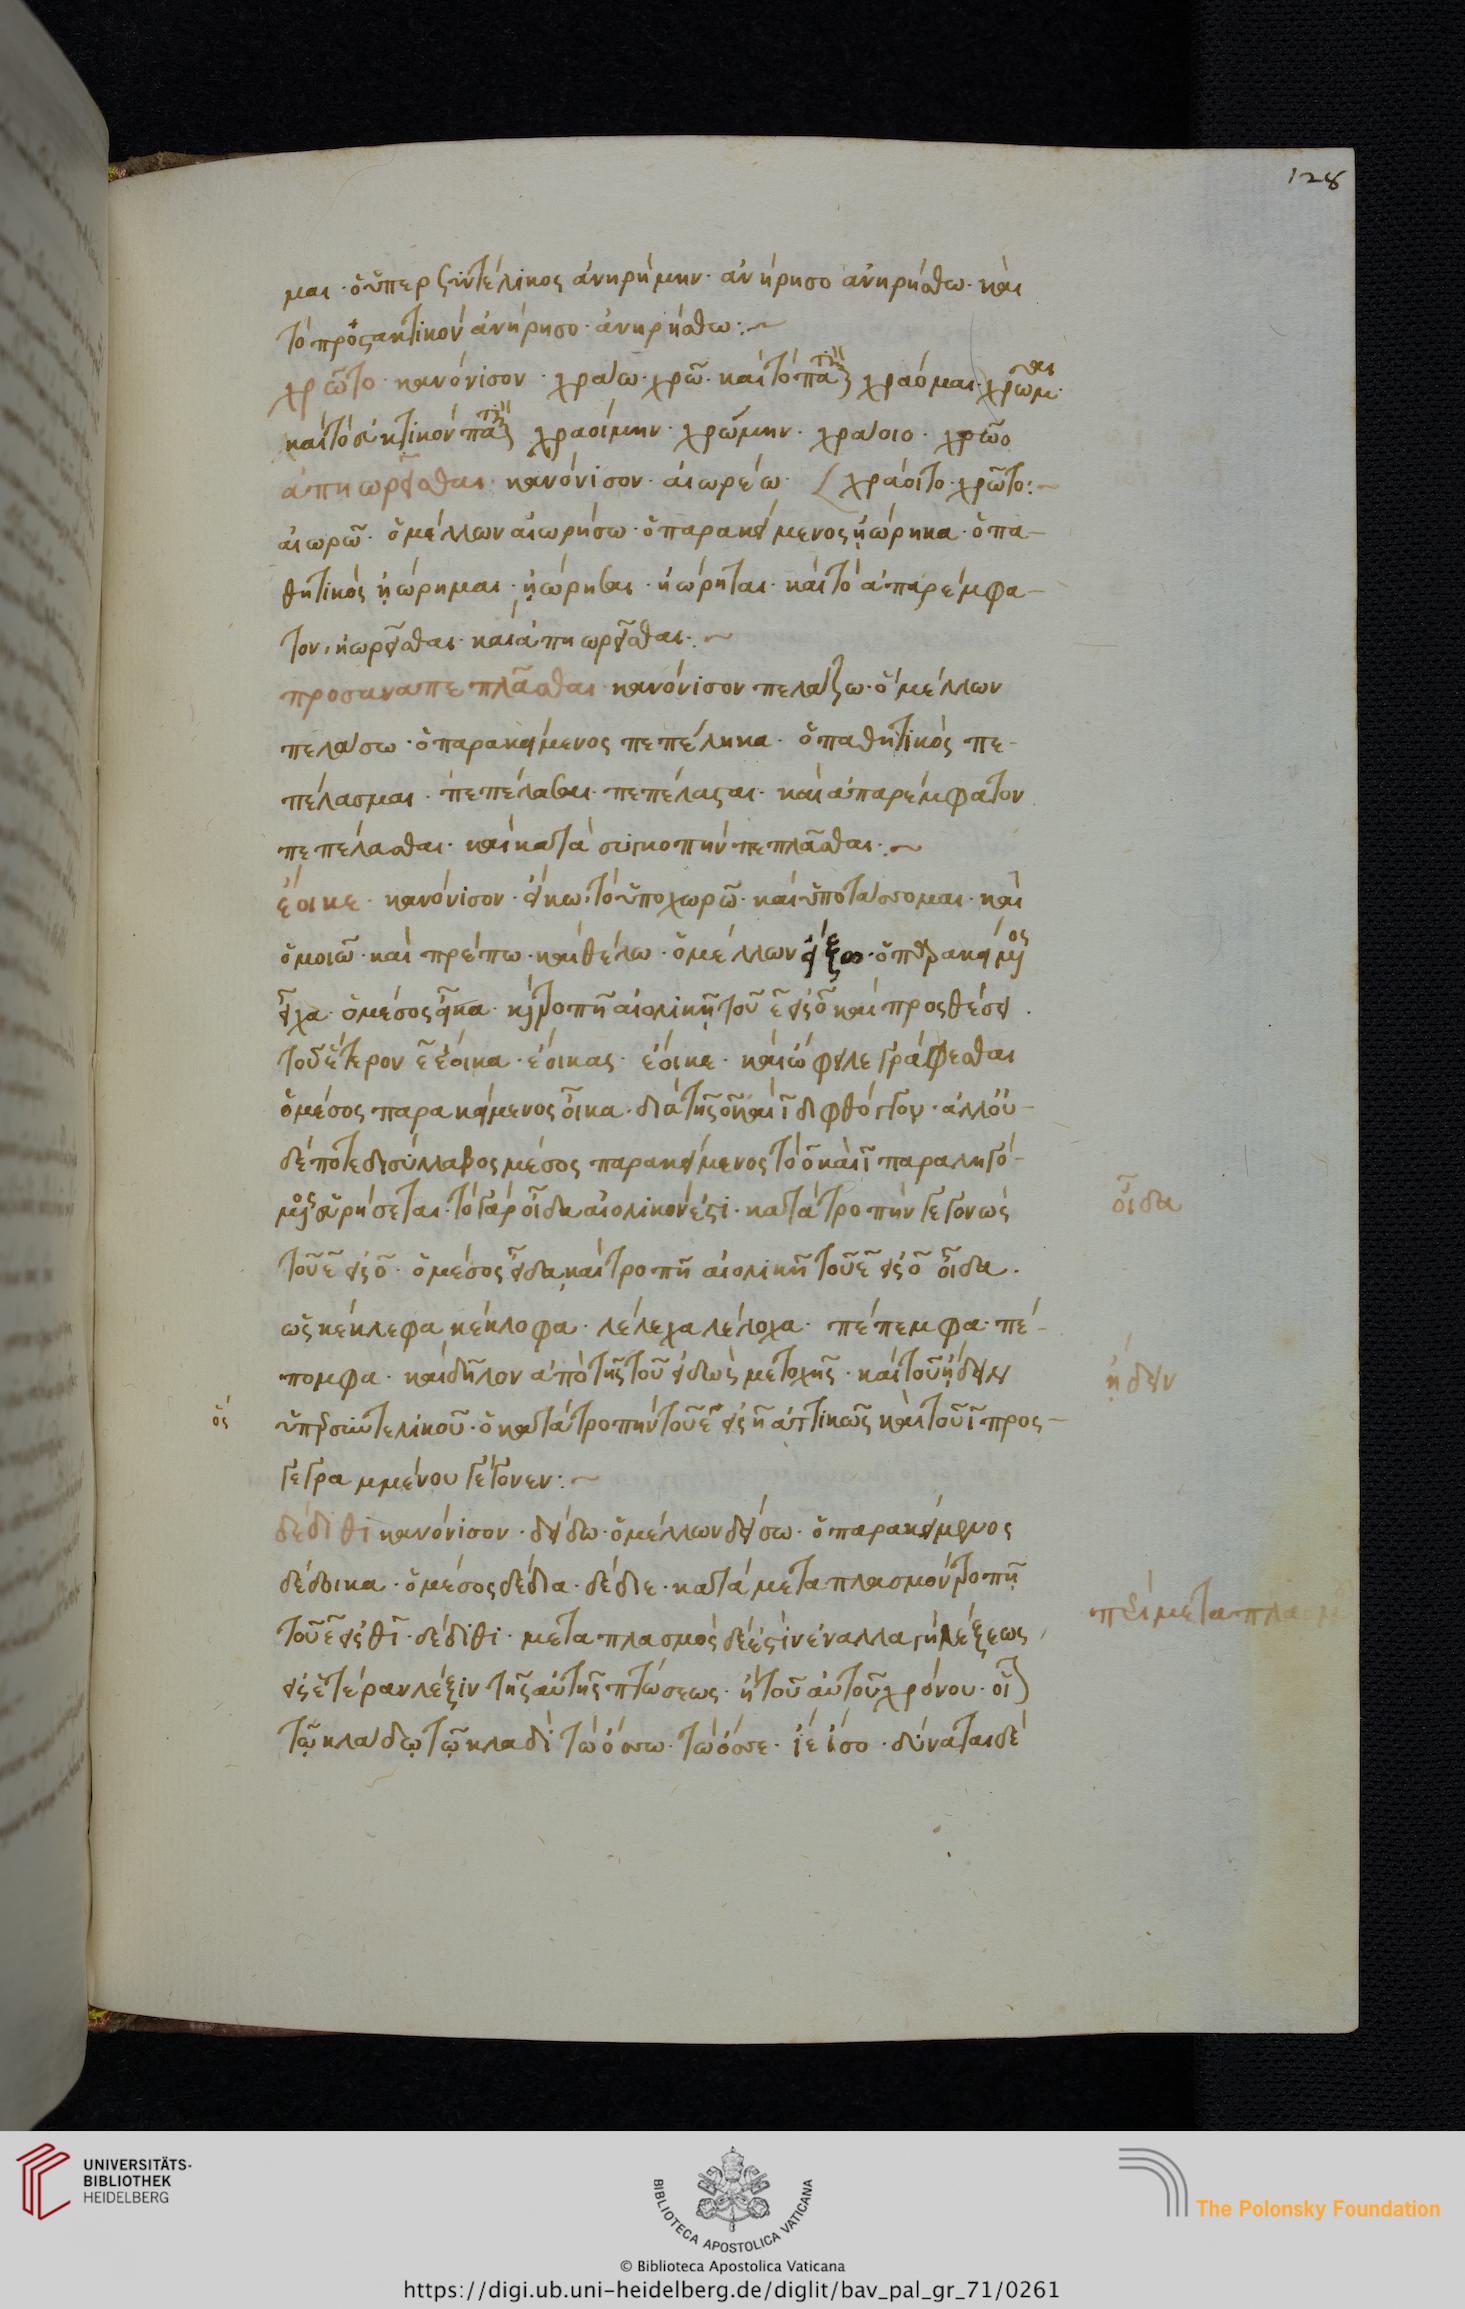 128
μαι · ὁ ὑπερσυντέλικος ἀνηρήμην · ἀνήρησο ἀνηρήσθω · καὶ
τὸ προστακτικὸν ἀνήρησο · ἀνηρήσθω :~
χρῶτο · κανόνισον · χράω · χρῶ · καὶ τὸ χράομαι · χρῶμαι
καὶ τὸ εὐκτικὸν χραοίμην · χρώμην · χράοιο · χρῶο
ἀπηωρεῖσθαι · κανόνισον · αἰωρέω · χράοιτο · χρῶτο :~
αἰωρῶ · ὁ μέλλων αἰωρήσω · ὁ παρακείμενος ᾐώρηκα · ὁ πα-
θητικὸς ᾐώρημαι · ᾐώρησαι · ᾐώρηται · καὶ τὸ ἀπαρέμφα-
τον, ἠωρεῖσθαι · καὶ ἀπηωρεῖσθαι :~
προσαναπεπλᾶσθαι · κανόνισον πελάζω · ὁ μέλλων
πελάσω · ὁ παρακείμενος πεπέληκα · ὁ παθητικὸς πε-
πέλασμαι · πεπέλασαι · πεπέλασται · καὶ ἀπαρέμφατον
πεπελάσθαι · καὶ κατὰ συγκοπὴν πεπλᾶσθαι :~
ἔοικε · κανόνισον · εἴκω · τὸ ὑποχωρῶ · καὶ ὑποτάσσομαι · καὶ
ὁμοιῶ · καὶ πρέπω · καὶ θέλω · ὁ μέλλων εἴξω · ὁ παρακείμενος
εἶχα · ὁ μέσος εἶκα · καὶ τροπῇ αἰολικῇ τοῦ ε̃ εἰς ο̃ καὶ προσθέσει
τοῦ ἑτέρου ε̃ ἔοικα · ἔοικας · ἔοικε · καὶ ὤφειλε γράφεσθαι
ὁ μέσος παρακείμενος οἶκα · διὰ τῆς ο̃ καὶ ϊ διφθόγγου · ἀλλ' οὐ-
δέποτε δισύλλαβος μέσος παρακείμενος τὸ ο̃ καὶ ϊ παραληγό-
μενος εὑρήσεται · τὸ γὰρ οἶδα αἰολικόν ἐστι · κατὰ τροπὴν γεγονὼς
τοῦ ε̃ εἰς ο̃ · ὁ μέσος εἶδα, καὶ τροπῇ αἰολικῇ τοῦ ε̃ εἰς ο̃ οἶδα ·
ὡς κέκλεφα κέκλοφα · λέλεχα λέλοχα · πέπεμφα · πέ-
πομφα · καὶ δῆλον ἀπὸ τῆς τοῦ εἰδὼς μετοχῆς · καὶ τοῦ ᾔδειν
ὑπερσυντελίκου · ὁ κατὰ τροπὴν τοῦ ε̃ εἰς η̃ ἀττικῶς καὶ τοῦ ϊ προσ-
γεγραμμένου γέγονεν :~
δέδιθι κανόνισον · δείδω · ὁ μέλλων δείσω · ὁ παρακείμενος
δέδοικα · ὁ μέσος δέδια · δέδιε · κατὰ μεταπλασμὸν τροπῇ
τοῦ ε̃ εἰς θϊ · δέδιθι · μεταπλασμὸς δέ ἐστιν ἐναλλαγὴ λέξεως
εἰς ἑτέραν λέξιν τῆς αὐτῆς πτώσεως · ἢ τοῦ αὐτοῦ χρόνου · οἷον
τῷ κλάδῳ τῷ κλαδὶ τὼ ὄσσω · τὼ ὄσσε · ἵε ἵσο · δύναται δὲ
οἶδα
ᾔδειν
ὃς
περὶ μεταπλασμ
UNIVERSITÄTS-
BIBLIOTHEK
HEIDELBERG
BIBLIOTECA APOSTOLICA VATICANA
The Polonsky Foundation
© Biblioteca Apostolica Vaticana
https://digi.ub.uni-heidelberg.de/diglit/bav_pal_gr_71/0261